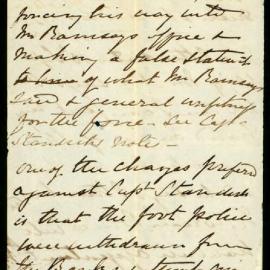 forcing his way into
Mr Ramsays office &
making a false statemt
of what Mr Ramsay
said & general unfitness
for the force. See Capt
Standish's note –
One of the charges prefered
against Capt Standish
is that the foot police
were withdrawn from
the Banks